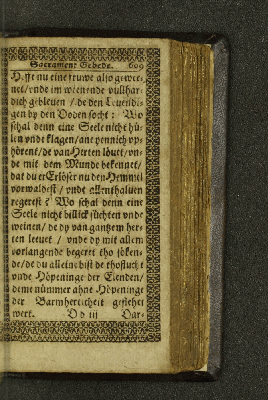 Sacrament Gebede. 609
Is nu eine truwe also gewei-
net/vnde im weenende vullhar-
dich gebleuen / de den Leuendi-
gen by den Doden socht: Wo
schal denn eine Seele nicht hü-
len vnde klagen/ane vennich vp-
hörent/de van Herten löuet/vn-
de mit dem Munde bekennet/
dat du er Erlöser nu den Hemmel
vormaldest / vnde allenthaluen
regerest? Wo schal denn eine
Seele nicht billick süchten vnde
weinen/ de dy van gantzem her-
ten leeuet / vnde dy mit allem
vorlangende begeret tho söken-
de/ de du alleine bist de thoflucht
vnde Höpeninge der Elenden/
deme nümmer ahne Höpeninge
der Barmherticheit geschet
wert. Dd iij Dar-